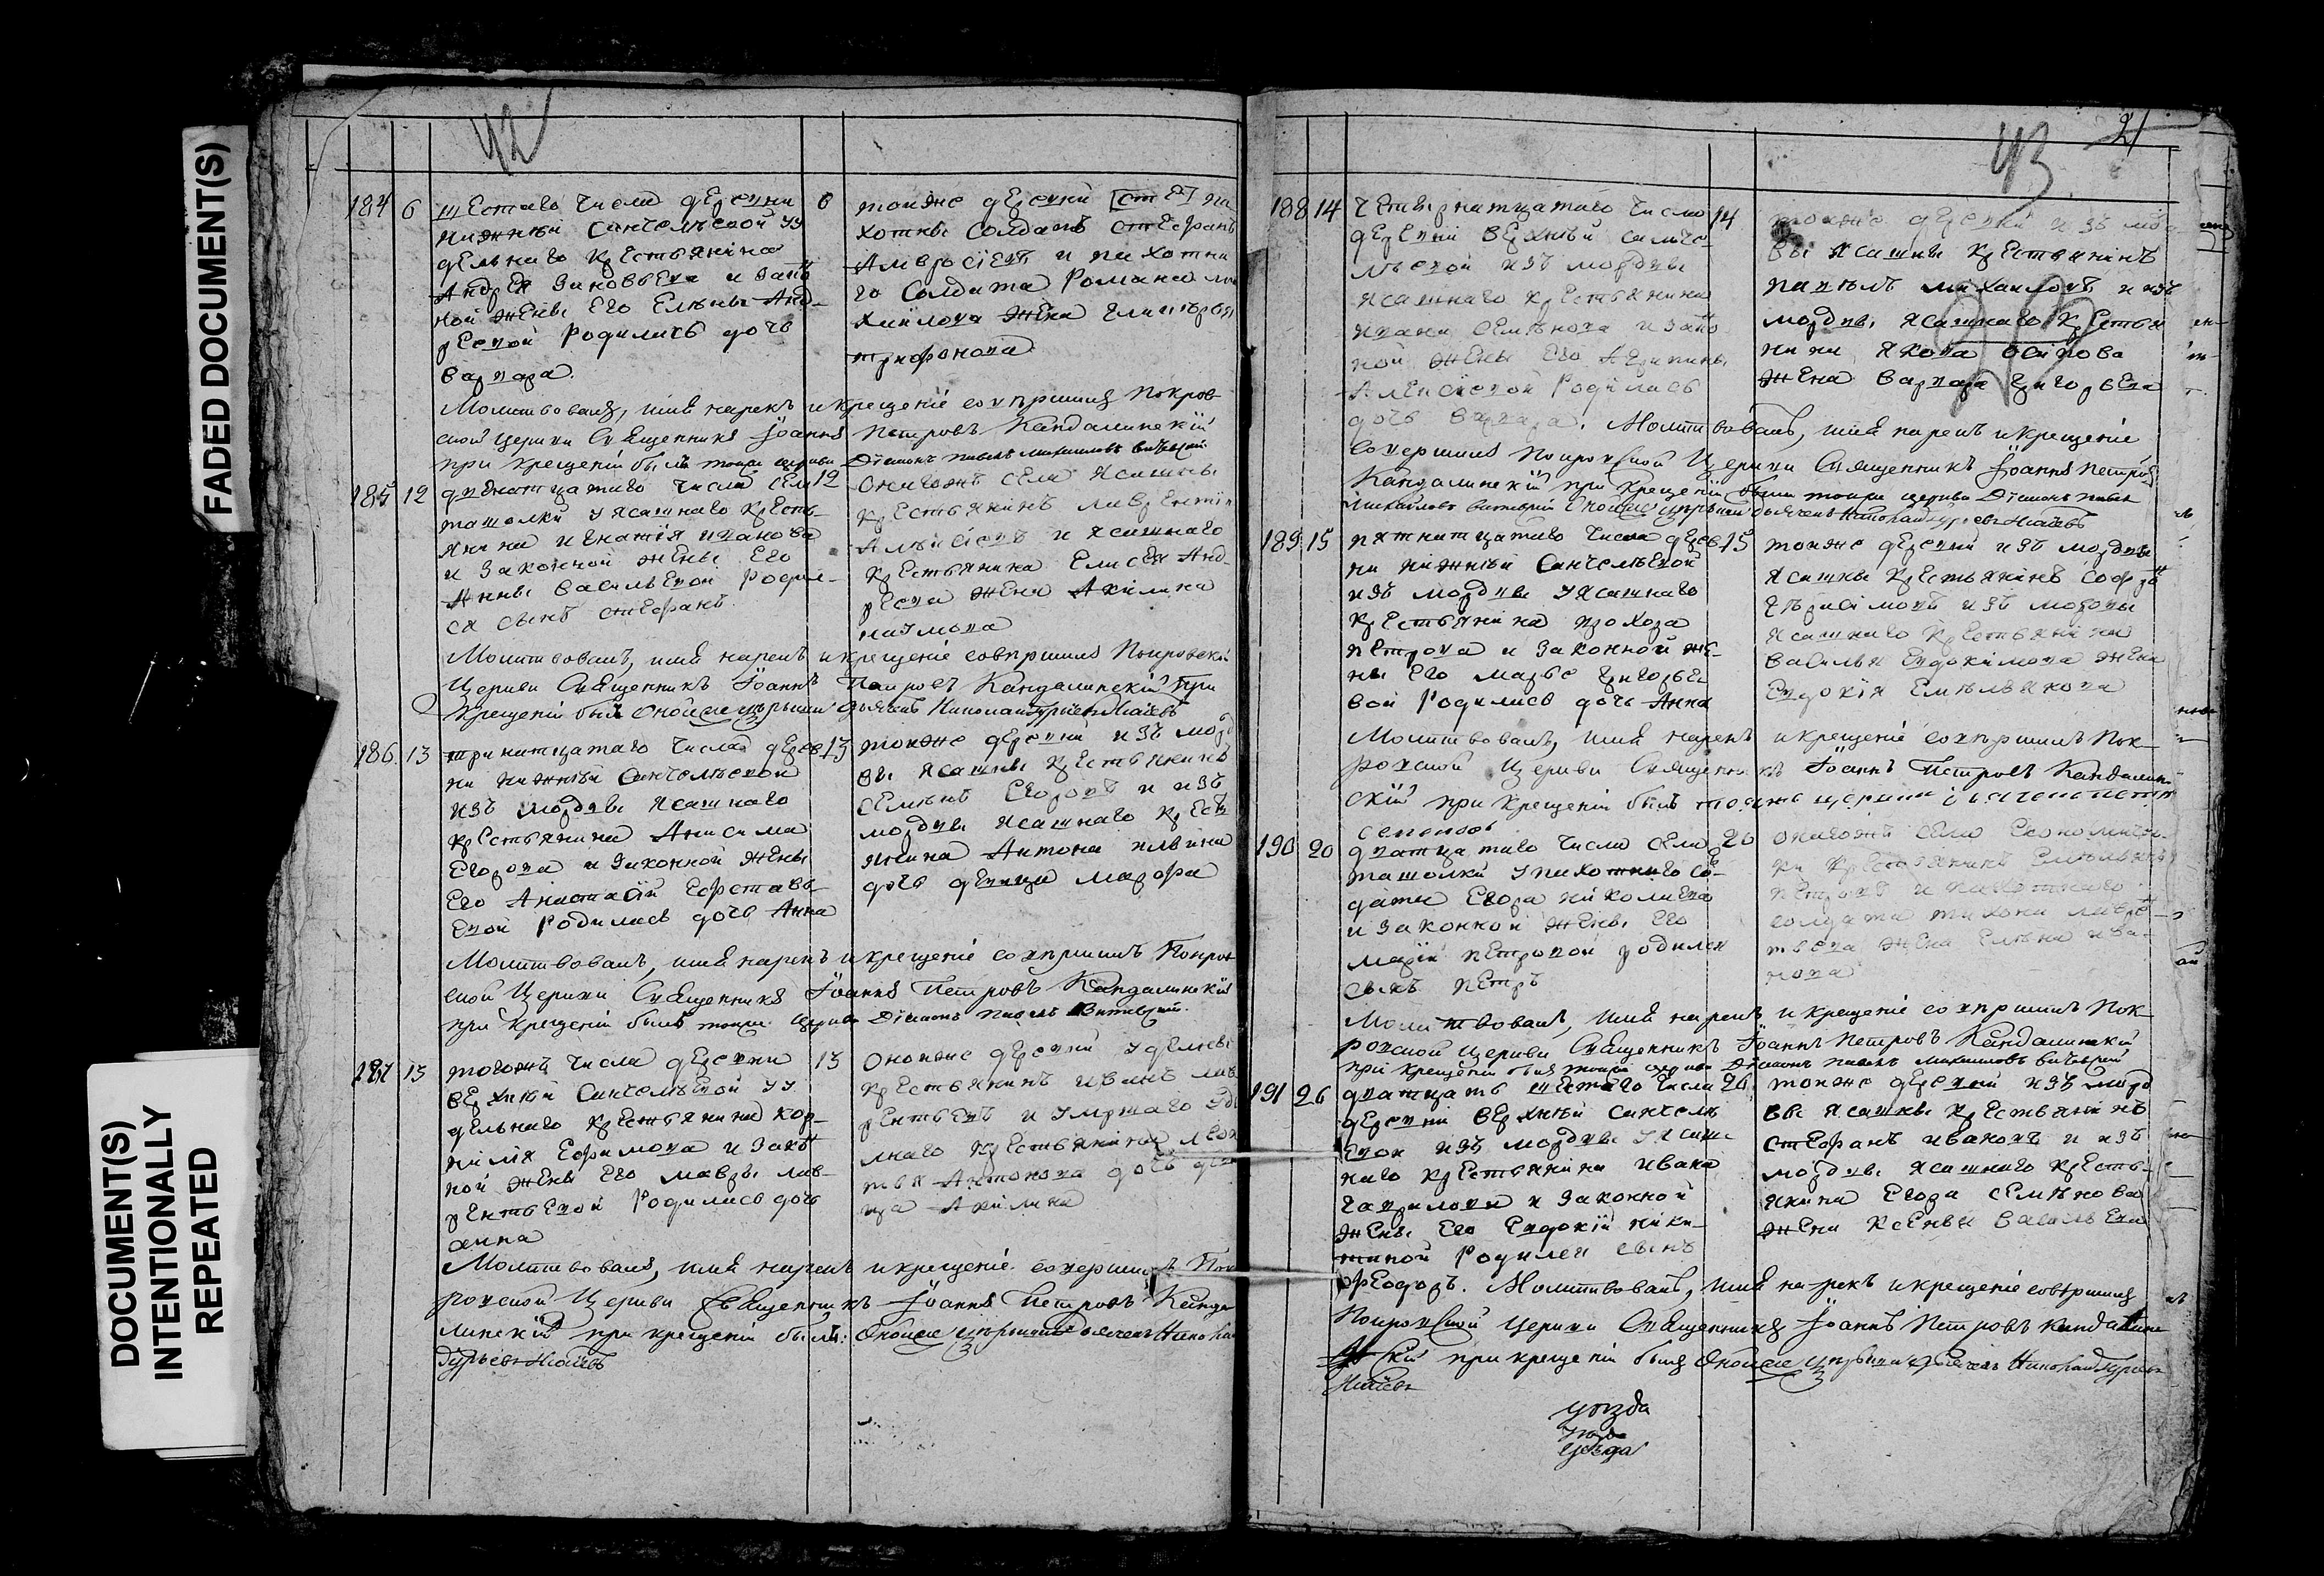 FADED DOCUMENT(S)
DOCUMENT(S)
INTENTIONALLY
REPEATED
42
184 6 шестаго числа деревни
нижней Санчелѣевой уу
дѣльнаго крестьянина
Андрея Зиновьева и зако
ной жены его Елены Анд-
реевой родилась дочь
варвара.
6 тояже деревни
хотны солдатъ стефанъ
Амвросіевъ и пихотна
го солдата Романа
жена
трифонова
Молитвовалъ, имя нарекъ и крещеніе совершилъ Покров-
ской церкви Священникъ Іоаннъ Петровъ Кандалинскій
при крещеніи былъ тояже церкви Діаконъ павелъ михаиловъ
185 12 двенатцатаго числа села
ташолки у ясашнаго кресть-
янина игнатія иванова
и законной жены его
Анны васильевой родил-
ся сынъ стефанъ.
12 онагожъ села ясашны
крестьянинъ лаврентій
Алексіевъ и ясашнаго
крестьянина Елисея Анд-
реева жена Акилина
наумова
Молитвовалъ, имя нарекъ и крещеніе совершилъ Покровской
Церкви Священникъ Іоаннъ Петровъ Кандалинскій при
крещеніи былъ оной церькви дьячекъ
186 13 тринатцатаго числа дерев
ни нижней Санчелѣевой
изъ мордвы ясашнаго
крестьянина Анисима
Егорова и законной жены
Его Анастасіи Ефставь-
евой родилась дочь Анна
13 тояже деревни изъ морд
вы ясашны крестьянинъ
семенъ Егоровъ и изъ
мордвы ясашнаго кресть
янина Антона
дочь девица марфа
Молитвовалъ, имя нарекъ и крещеніе совершилъ Покров
ской Церкви Священникъ Іоаннъ Петровъ Кандалинскій
при крещеніи былъ тояже церкви Діаконъ павелъ
187 13 тогожъ числа деревни
верхней Санчелѣевой уу
дѣльнаго крестьянина кор-
нилія Ефимова и зако
ной жены его мавры лав-
рентьевой родилась дочь
анна
13 онояже деревни удѣлны
крестьянинъ иванъ лав
рентьевъ и умршаго
лнаго крестьянина
Антонова дочь
ца Акилина
Молитвовалъ, имя нарекъ и крещеніе совершилъ Пок
ровской Церкви Священникъ Іоаннъ Петровъ Канда
линскій при крещеніи былъ: оной церькви дьячекъ
43
21
188 14 четвернатцатаго числа
деревни верхней санче
лѣевой изъ мордвы
ясашнаго крестьянина
ивана семенова и зако
ной жены его Агрипины
Алексіевой родилась
дочь варвара.
14 тояже деревни изъ морд
вы ясашны крестьянинъ
павелъ михаиловъ и изъ
мордвы ясашнаго крестья
нина якова осипова
жена варвара григорьева
Молитвовалъ, имя нарекъ и крещеніе
совершилъ покровской Церкви Священникъ Іоаннъ Петровъ
Кандалинскій при крещеніи были тояже церкви Діаконъ павелъ
михайловъ
189 15 пятнатцатаго числа дерев
ни нижней Санчелѣевой
изъ мордвы у ясашнаго
крестьянина прохора
петрова и законной же-
ны Его марьи григорье
вой родилась дочь Анна
15 тояже деревни изъ мордвы
ясашны крестьянинъ
изъ мордвы
ясашнаго крестьянина
василья Евдокимова жена
Евдокія Емельянова
Молитвовалъ, имя нарекъ и крещеніе совершилъ Пок-
ровской Церкви Священникъ Іоаннъ Петровъ Кандалин
скій при крещеніи былъ тояжъ церкви
190 20 дватцатаго числа села
ташолки у пихотнаго со-
дата Егора николаева
и законной жены Его
маріи петровой родился
сынъ петръ
20 онагожъ села
крестьянинъ Емельянъ
петровъ и пихотнаго
солдата тихона
жена Елена ива-
нова
Молитвовалъ, имя нарекъ и крещеніе совершилъ Пок-
ровской Церкви Священникъ Іоаннъ Петровъ Кандалинскій
при крещеніи былъ тояже церкви Діаконъ павелъ михаиловъ
191 26 дватцать шестаго числа
деревни верхней Санчелѣ
евой изъ мордвы у ясаш
наго крестьянина ивана
гаврилова и законной
жены Его Евдокіи ники-
тиной родился сынъ
феодоръ.
26 тояже деревни изъ морд
вы ясашны крестьянинъ
стефанъ ивановъ и изъ
мордвы ясашнаго кресть-
янина Егора семенова
жена ксенья васильева
Молитвовалъ, имя нарекъ и крещеніе совершилъ
Покровской Церкви Священникъ Іоаннъ Петровъ Кандалин
скій при крещеніи былъ оной церькви дьячекъ
уѣзда
уѣзда